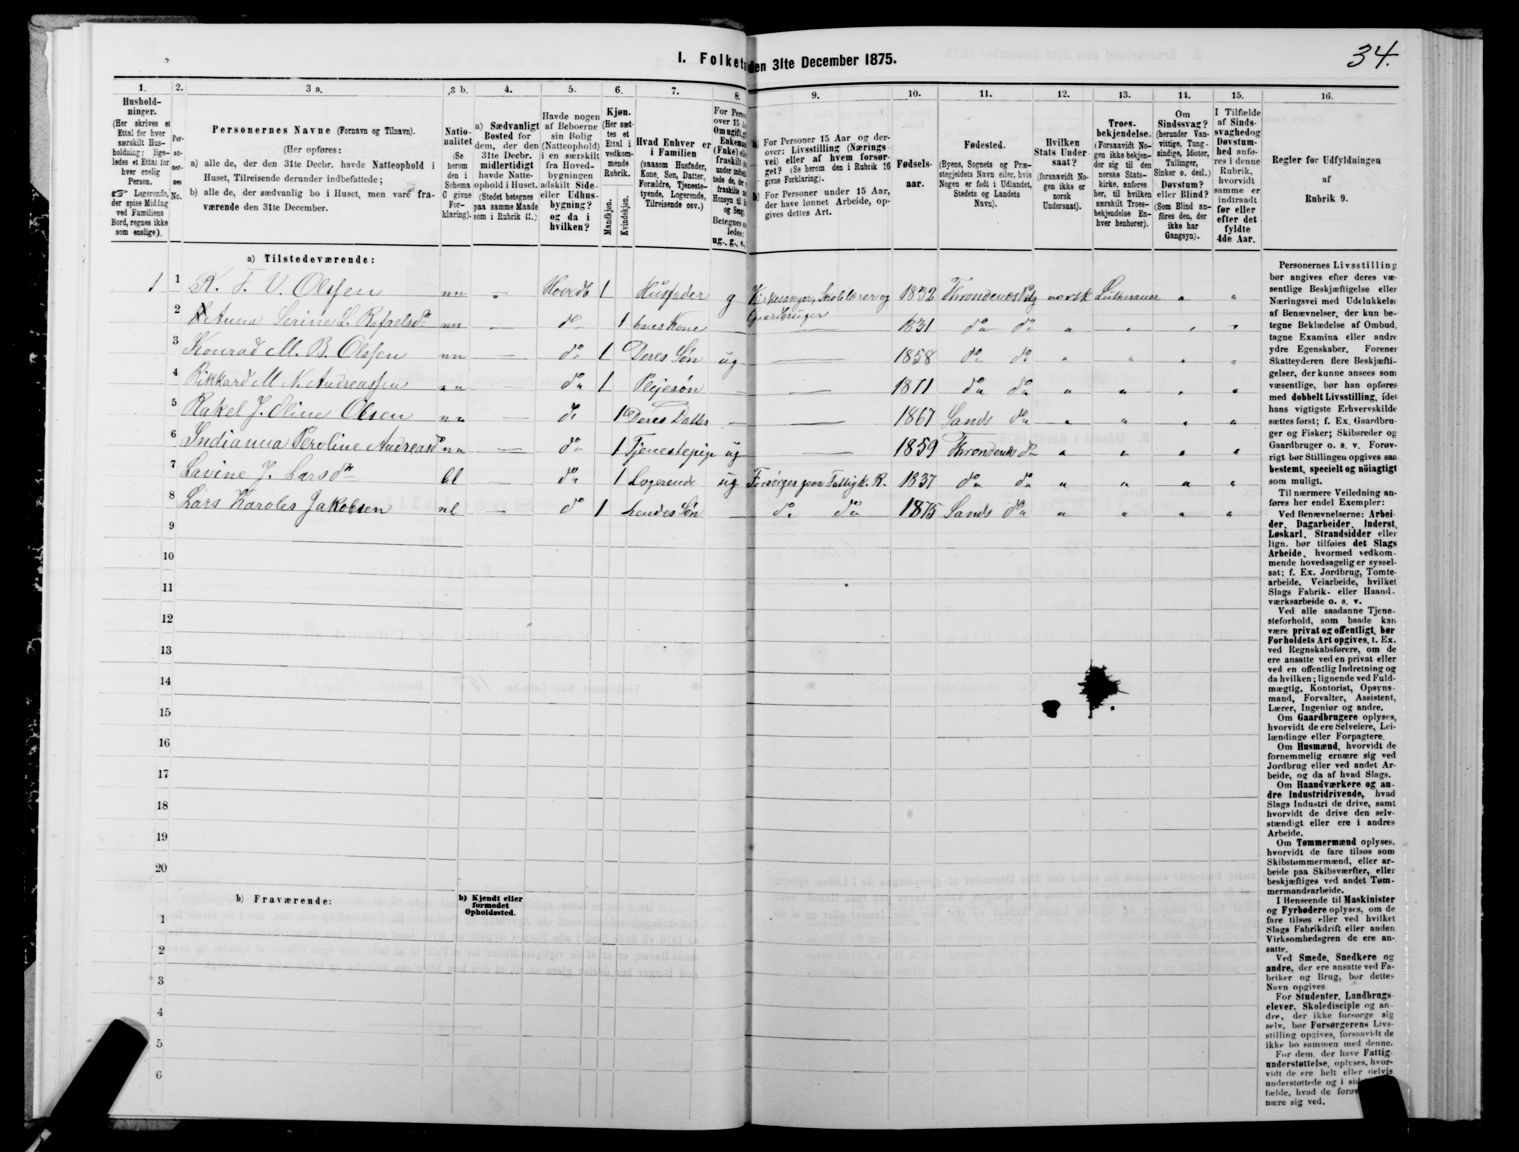 I. Folket den 31te December 1875.
34.
1.
2.
3 a.
3 b.
4.
5.
6.
7.
8.
9.
10.
11.
12.
13.
14.
15.
16.
Hushold-
ninger.
(Her skrives et
Ettal for hver
særskilt Hus-
holdning; lige-
ledes et Ettal for
hver enslig
Person.
☞ Logerende,
der spise Middag
ved Familiens
Bord, regnes ikke
som enslige).
Per-
so-
ner-
nes
No.
Personernes Navne (Fornavn og Tilnavn).
(Her opføres:
a) alle de, der den 31te Decbr. havde Natteophold i
Huset, Tilreisende derunder indbefattede;
b) alle de, der sædvanlig bo i Huset, men vare fra-
værende den 31te December.
Natio-
nalitet
(Se
herom
den i
Schema
C givne
For-
klaring).
a) Sædvanligt
Bosted for
dem, der den
31te Decbr.
midlertidigt
havde Natte-
ophold i Huset.
(Stedet betegnes
paa samme Maade
som i Rubrik 11.)
Havde nogen
af Beboerne
sin Bolig
(Natteophold)
i en særskilt
fra Hoved-
bygningen
adskilt Side-
eller Udhus-
bygning?
og da i
hvilken?
Kjøn.
(Her sæt-
tes et
Ettal i
vedkom-
mende
Rubrik.
Mandkjøn.
Kvindekjøn.
Hvad Enhver er
i Familien
(saasom Husfader,
Kone, Søn, Datter,
Forældre, Tjeneste-
tyende, Logerende,
Tilreisende osv.)
For Perso
over 15 A
Om ugift, g
Enkeman
(Fraskilt
ug., g., e.,
For Personer 15 Aar og der-
over: Livsstilling (Nærings-
vei) eller af hvem forsør-
get? (Se herom den i Rubrik 16
givne Forklaring).
For Personer under 15 Aar,
der have lønnet Arbeide, op-
gives dettes Art.
Fødsels-
aar.
Fødested.
(Byens, Sognets og Præ-
stegjeldets Navn eller, hvis
Nogen er født i Udlandet,
Stedets og Landets
Navn).
Hvilken
Stats Under-
saat?
(forsaavidt No-
gen ikke er
norsk
Undersaat).
Troes-
bekjendelse.
(Forsaavidt No-
gen ikke bekjen-
der sig til den
norske Stats-
kirke, anføres
her, til hvilken
særskilt Troes-
bekjendelse En-
hver henhører).
Om
Sindssvag?
(herunder Van-
vittige, Tung-
sindige, Idioter,
Tullinger,
Sinker o. desl.)
Døvstum?
eller Blind?
(Som Blind an-
føres den, der
ikke har
Gangsyn).
I Tilfælde
af Sinds-
svaghed og
Døvstum-
hed anfø-
res i denne
Rubrik,
hvorvidt
samme er
indtraadt
før eller
efter det
fyldte
4de Aar.
Regler for Udfyldningen
af
Rubrik 9.
a) Tilstedeværende:
1 1 K. F. V. Olssen nn - 1 Husfader g Kirkesanger, Skolelærer og Gaardbruger 1832 Throndenæs norsk Lutheraner " "
2 Anna Serine L. Rafaelsdtr nn - do 1 hans Kone - 1831 do do " " " "
3 Konrad M. B. Olssen nn - do 1 Deres Søn ug - 1858 do do " " " "
4 Rikkard M N. Andreassen nn - do 1 Plejesøn - - 1871 do do " " " "
5 Rakel J. Oline Olsen nn - do 1 Deres Datter - - 1867 Sands do " " " "
6 Indianna Peroline Andreasd nn - do 1 Tjenestepige ug - 1859 Throndenæs do " " " "
7 Lavine J. Larsdtr bl - do 1 Logerende ug Forsørges paa Fattigk. R. 1837 do do " " " "
8 Lars Karoles Jakobsen nl - d 1 hendes Søn - do do 1875 Sands do " " " "
9
10
11
12
13
14
15
16
17
18
19
20
b) Fraværende:
b) Kjendt eller
formodet
Opholdssted.
1
2
3
4
5
6
Personernes Livsstilling
bør angives efter deres væ-
sentlige Beskjæftigelse eller
Næringsvei med Udelukkelse
af Benævnelser, der kun be-
tegne Beklædelse af Ombud,
tagne Examina eller andre
ydre Egenskaber. Forener
Skatteyderen flere Beskjæfti-
gelser, der kunne ansees som
væsentlige, bør han opføres
med dobbelt Livsstilling, idet
hans vigtigste Erhvervskilde
sættes først; f. Ex. Gaardbru-
ger og Fisker; Skibsreder og
Gaardbruger o. s. v. Forøv-
rigt bør Stillingen opgives saa
bestemt, specielt og nøiagtigt
som muligt.
Til nærmere Veiledning an-
føres her endel Exempler:
Ved Benævnelserne: Arbei-
der, Dagarbeider, Inderst,
Løskarl, Strandsidder eller
lign. bør tilføies det Slags
Arbeide, hvormed vedkom-
mende hovedsagelig er syssel-
sat; f. Ex. Jordbrug, Tomte-
arbeide, Veiarbeide, hvilket
Slags Fabrik- eller Haand-
værksarbeide o. s. v.
Ved alle saadanne Tjene-
steforhold, som baade kan
være privat og offentligt, bør
Forholdets Art opgives, t. Ex.
ved Regnskabsførere, om de
ere ansatte ved en privat eller
ved en offentlig Indretning og
da hvilken; lignende ved Fuld-
mægtig, Kontorist, Opsyns-
mand, Forvalter, Assistent,
Lærer, Ingeniør og andre.
Om Gaardbrugere oplyses,
hvorvidt de ere Selveiere, Lei-
lændinge eller Forpagtere.
Om Husmænd, hvorvidt de
fornemmelig ernære sig ved
Jordbrug eller ved andet Ar-
beide, og da af hvad Slags.
Om Haandværkere og an-
dre Industridrivende, hvad
Slags Industri de drive, samt
hvorvidt de drive den selv-
stændigt eller ere i andres
Arbeide.
Om Tømmermænd oplyses,
hvorvidt de fare tilsøs som
Skibstømmermænd, eller ar-
beide paa Skibsværfter, eller
beskjæftiges ved andet Tøm-
mermandsarbeide.
I Henseende til Maskinister
og Fyrbødere oplyses, om de
fare tilsøs eller ved hvilket
Slags Fabrikdrift eller anden
Virksomhedsgren de ere an-
satte.
Ved Smede, Snedkere og
andre, der ere ansatte ved Fa-
briker og Brug, bør dettes
Navn opgives
For Studenter, Landbrugs-
elever, Skoledisciple og an-
dre, der ikke forsørge sig
selv, bør Forsørgerens Livs-
stilling opgives, forsaavidt de
ikke bo sammen med denne.
For dem, der have Fattig-
understøttelse, oplyses, hvor-
vidt de ere helt eller delvis
understøttede og i sid
fælde, hvad de forøv
nære sig ved.